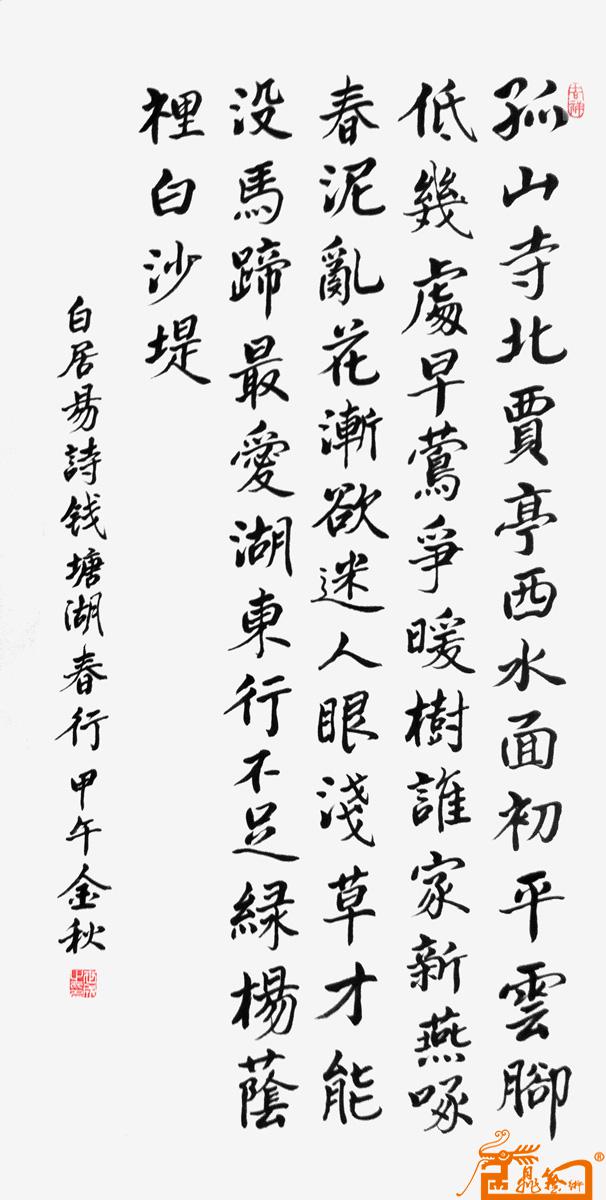 孤山寺北賈亭西水面初平雲腳
低幾處早鶯爭暖樹誰家新燕啄
春泥亂花漸欲迷人眼淺草才能
没馬蹄最愛湖東行不足緑楊蔭
裡白沙堤
白居易詩钱塘湖春行甲午金秋